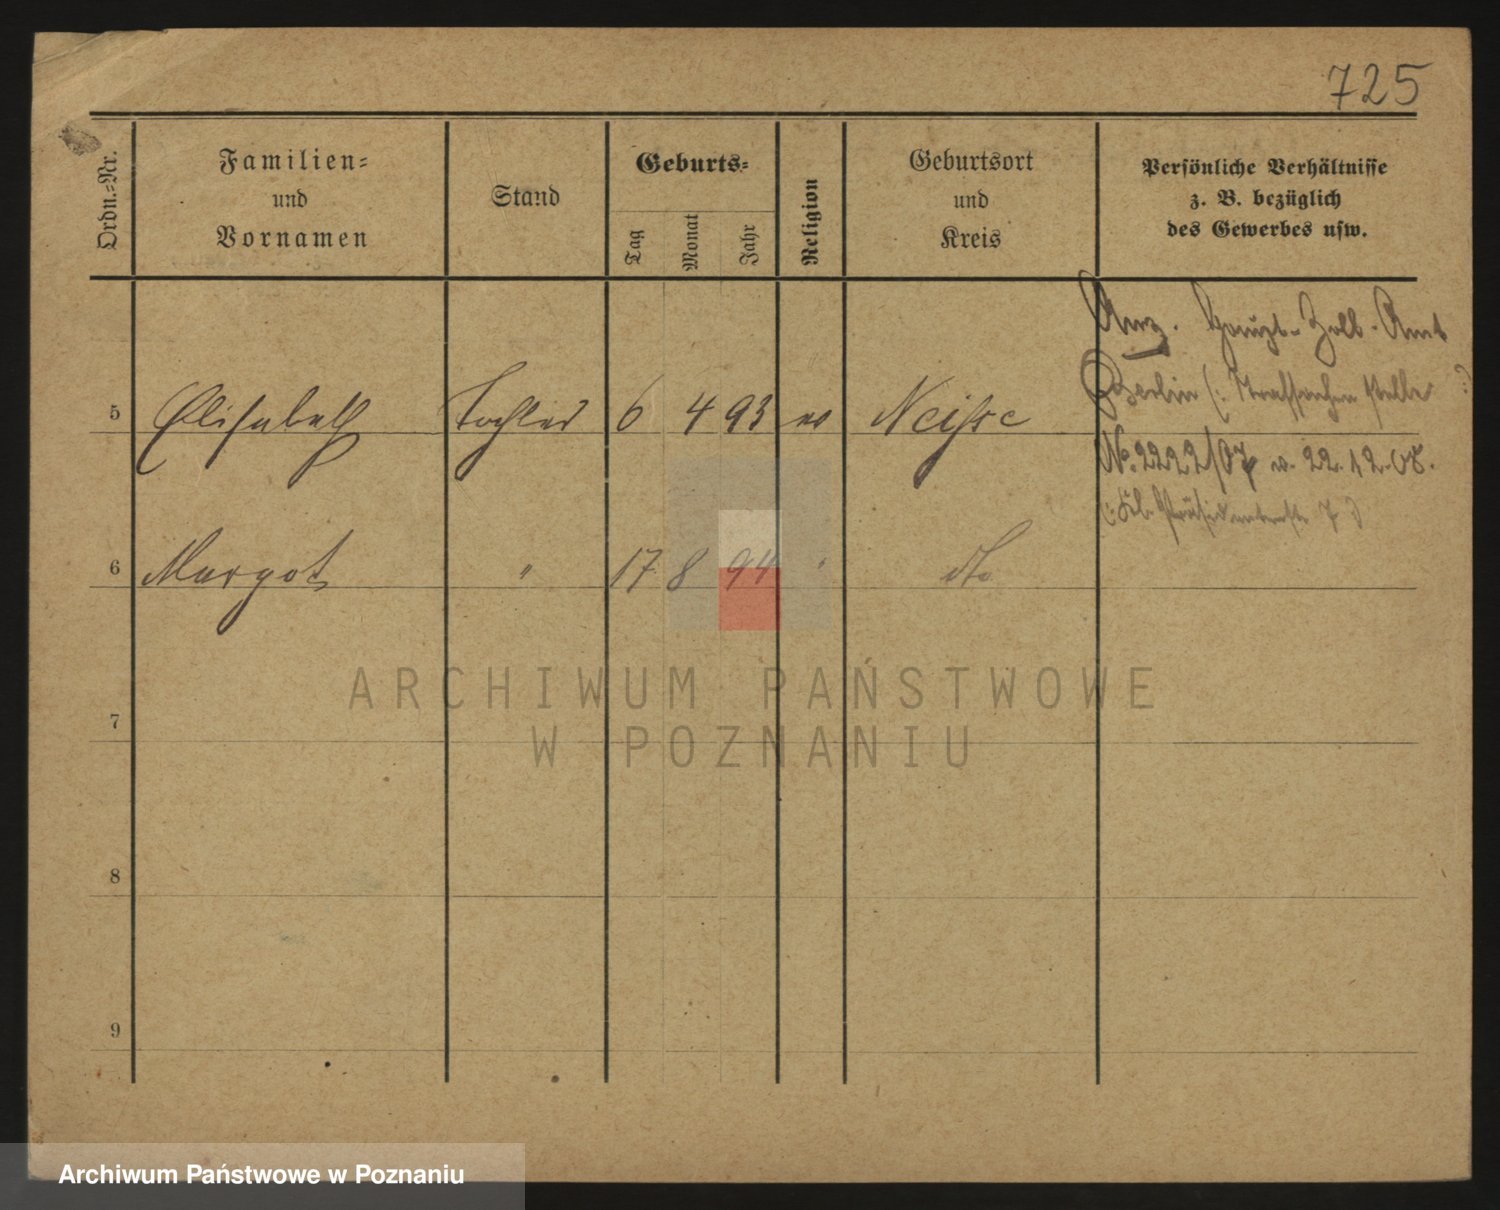 725
Ordn.-Nr.
Familien-
und
Vornamen
Stand
Geburts-
Tag
Monat
Jahr
Religion
Geburtsort
und
Kreis
Persönliche Verhältnisse
z. B. bezüglich
des Gewerbes usw.
Anz. Haupt-Zoll-Amt
Berlin (: Strafsachen stelle :)
No. 2222/07 v. 22.12.08.
5 Elisabeth Tochter 6 4 93 ev Neisse
6 Margot " 17 8 94 " do
7
8
9
ARCHIWUM PAŃSTWOWE
W POZNANIU
Archiwum Państwowe w Poznaniu